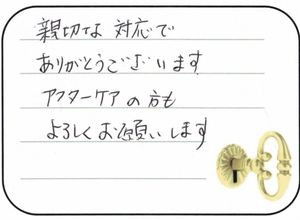 親切な対応で
ありがとうございます
アフターケアの方も
よろしくお願いします